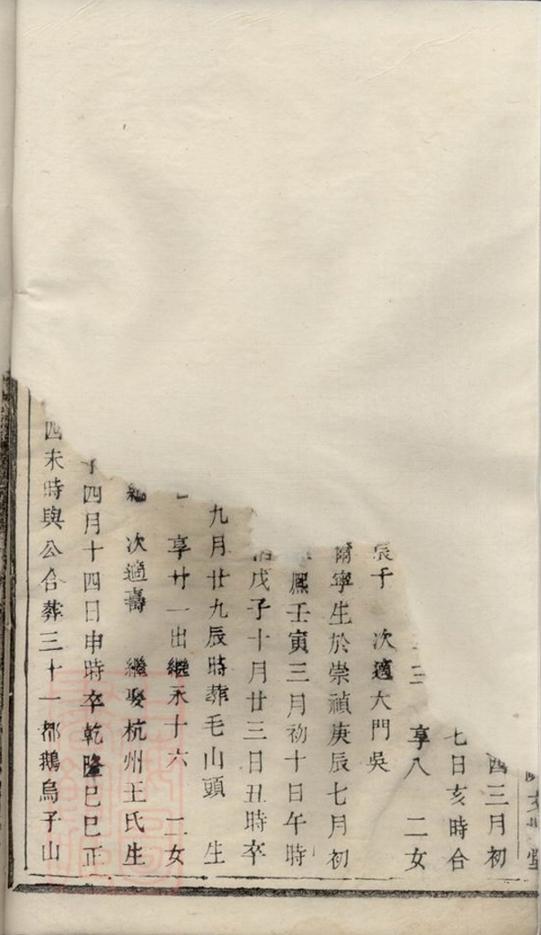 四三月初
七日亥時合
享八 二女
辰于 次適大門吳
爾寧生於崇禎庚辰七月初
熈壬寅三月初十日午時
戊子十月廿三日丑時卒
九月廿九辰時葬毛山頭 生
享廿一出繼永十六 二女
次適壽 繼娶杭州王氏生
四月十四日申時卒乾隆巳巳正
四未時與公合葬三十一都鵝烏子山